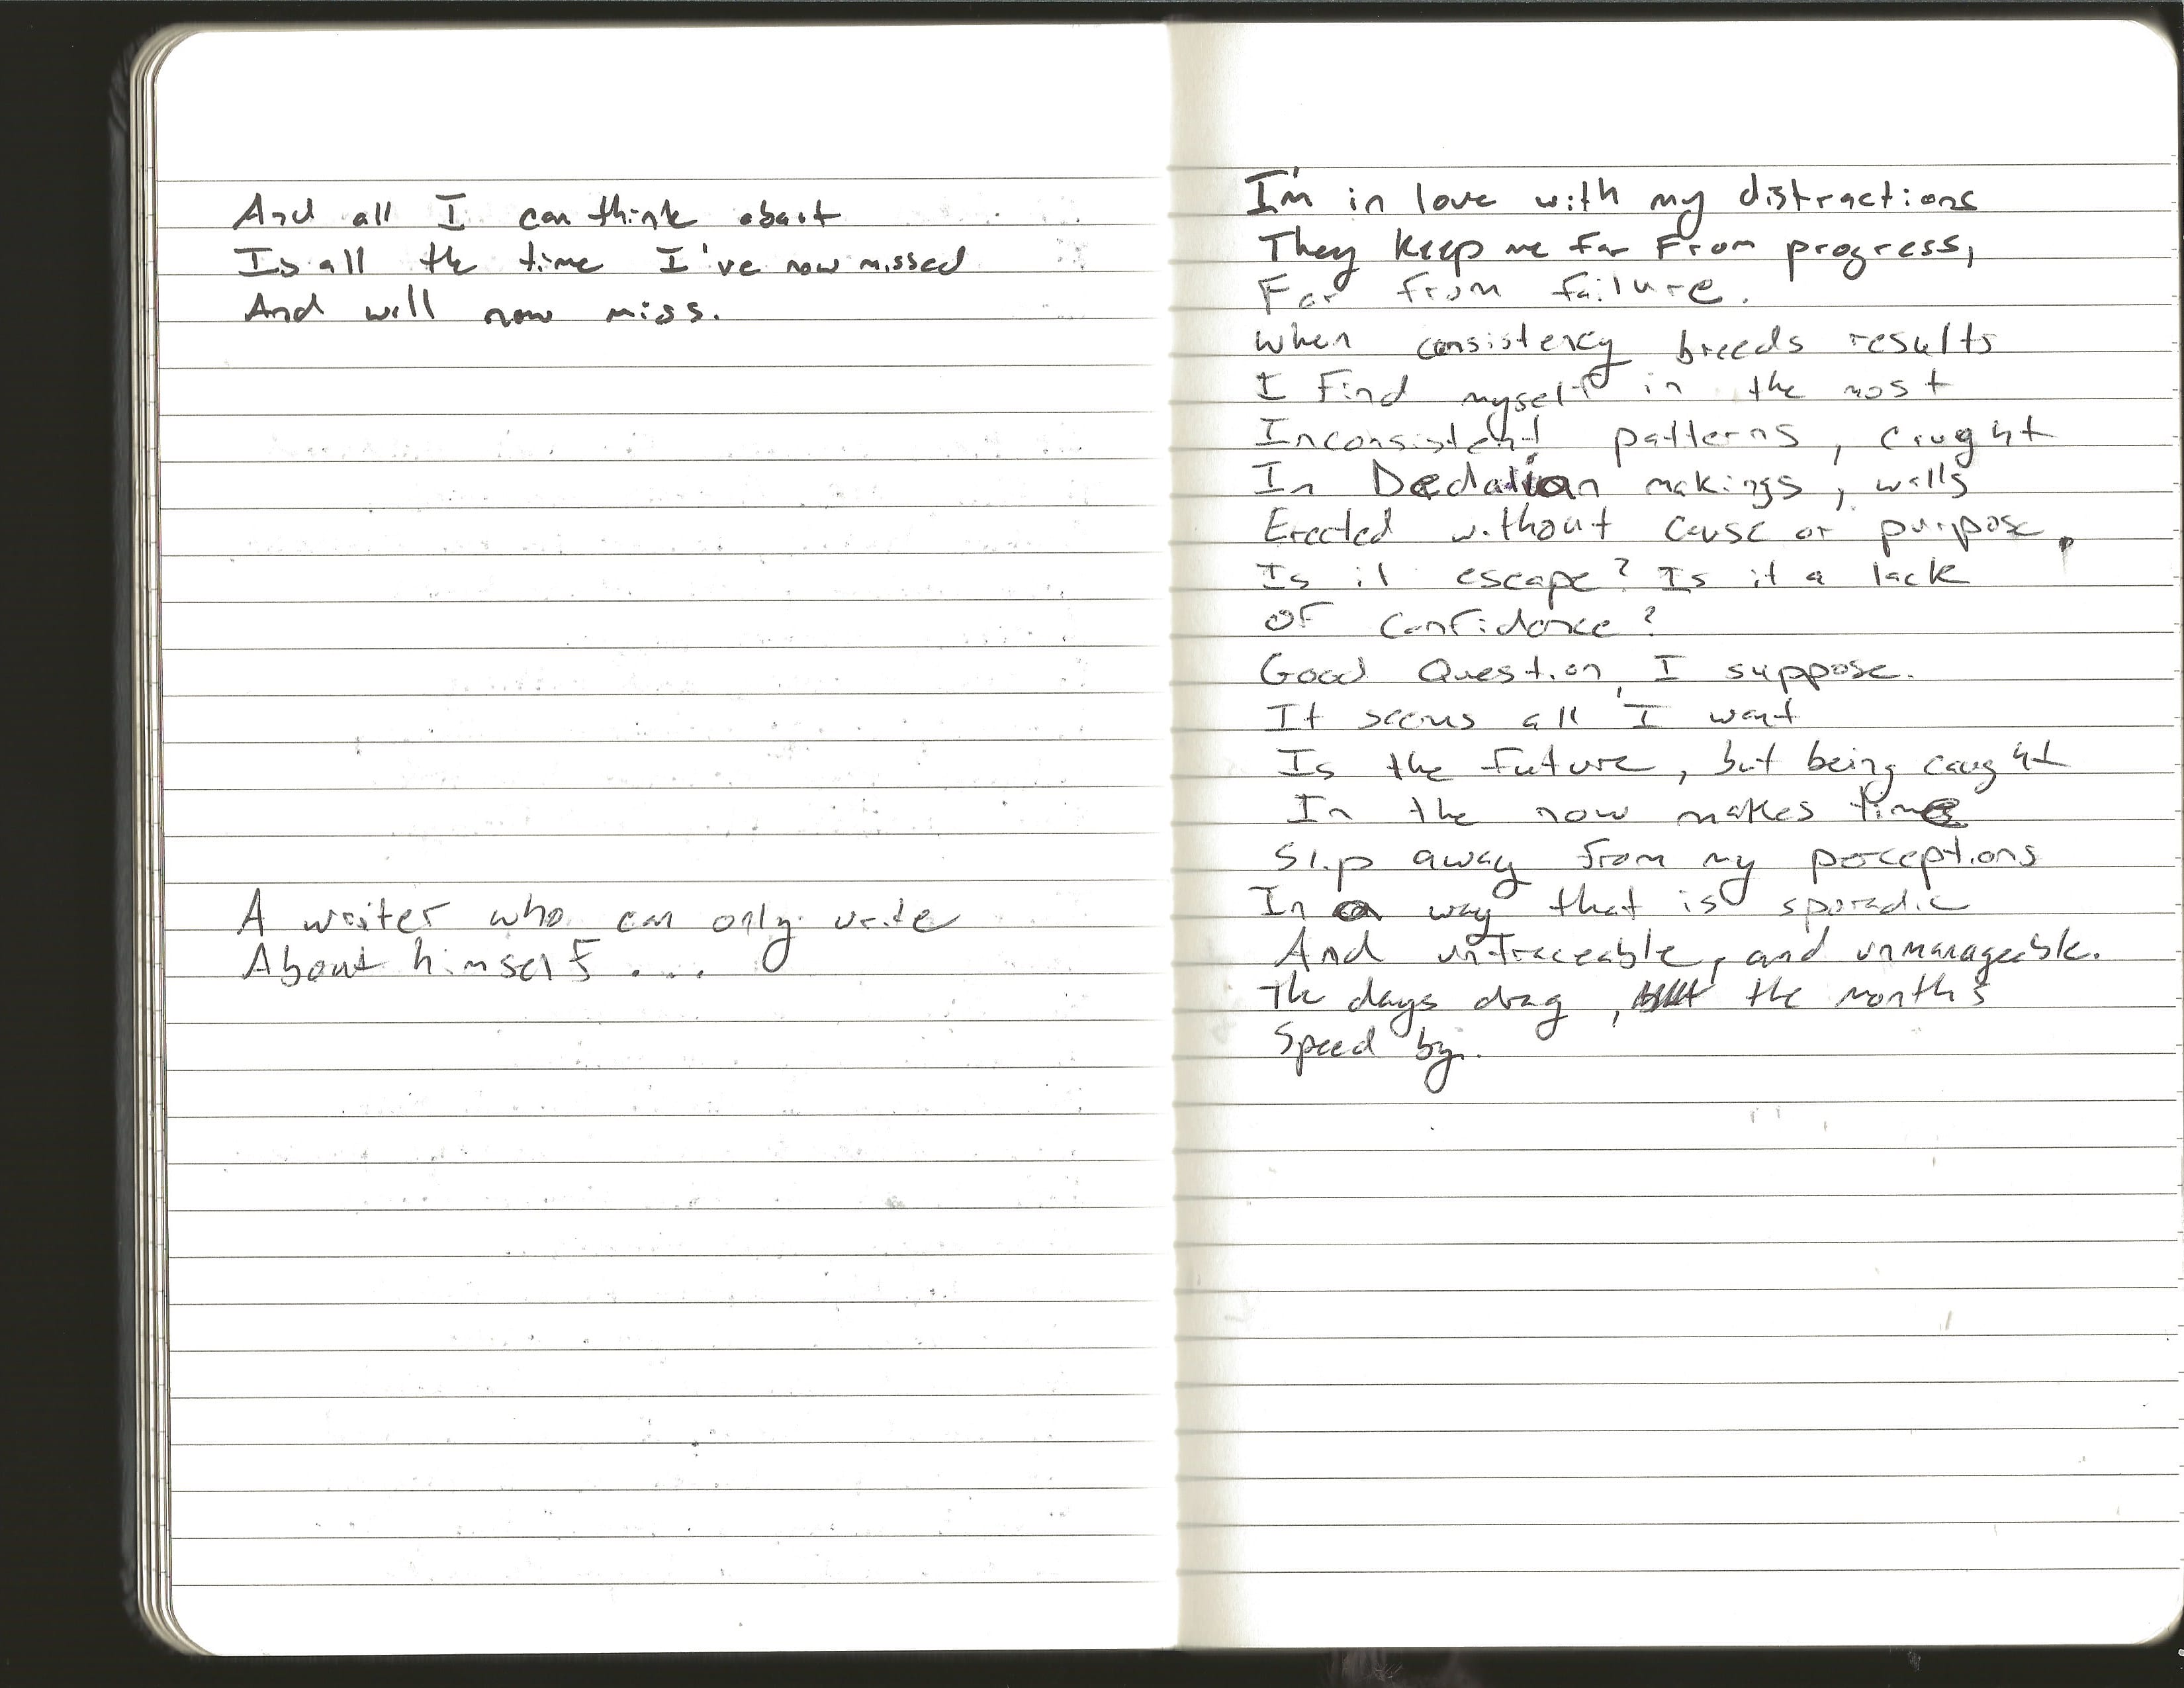 And all I can think about
Is all the time I've now missed
And will now miss.
A writer who can only write
About himself...
I'm in love with my distractions
They keep me far from progress,
Far from failure.
When consistency breeds results
I find myself in the most
Inconsistent patterns, caught
In Dedalian makings, walls
Erected without cause or purpose.
Is it escape? Is it a lack
Of confidence?
Good Question, I suppose.
It seems all I want
Is the future, but being caught
In the now makes time
Slip away from my perceptions
In a way that is sporadic
And untraceable, and unmanageable.
The days drag, the months
Speed by.